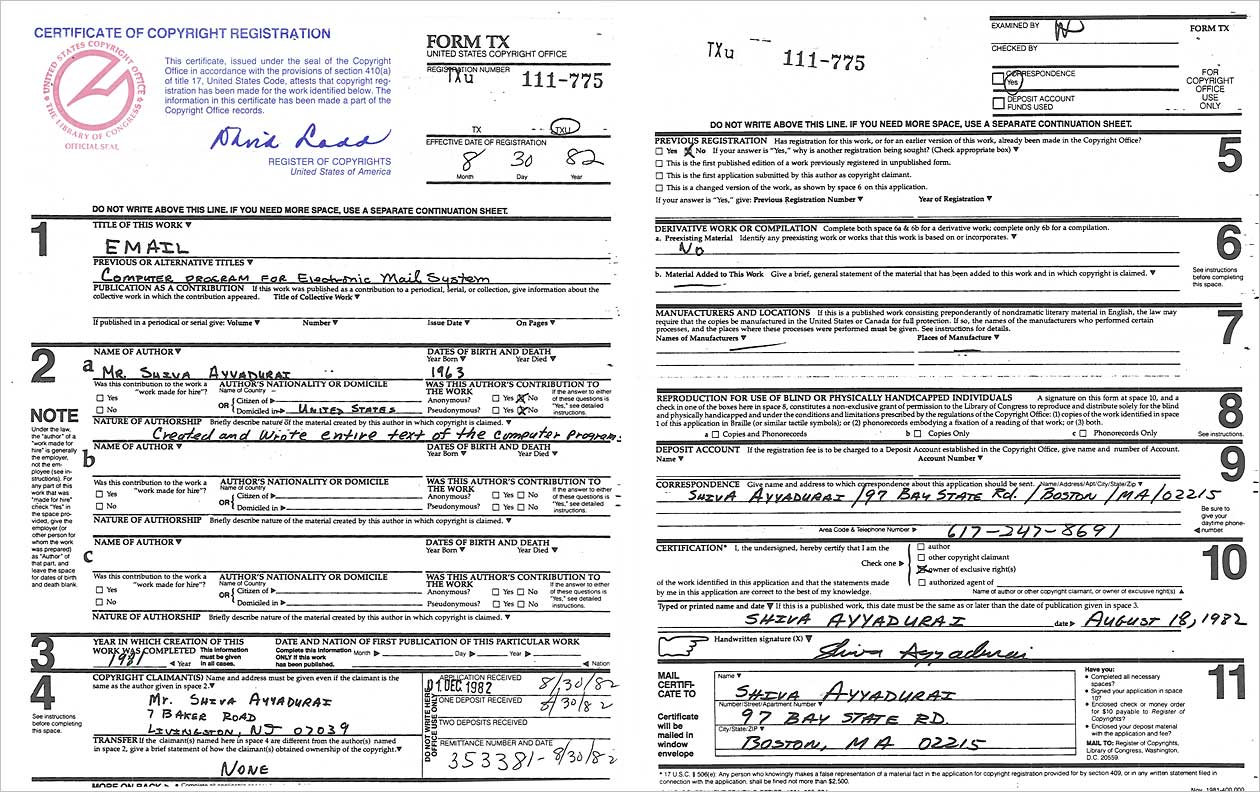 CERTIFICATE OF COPYRIGHT REGISTRATION
UNITED STATES COPYRIGHT OFFICE
THE LIBRARY OF CONGRESS
OFFICIAL SEAL
This certificate, issued under the seal of the Copyright
Office in accordance with the provisions of section 410(a)
of title 17, United States Code, attests that copyright reg-
istration has been made for the work identified below. The
information in this certificate has been made a part of the
Copyright Office records.
David Ladd
REGISTER OF COPYRIGHTS
United States of America
FORM TX
UNITED STATES COPYRIGHT OFFICE
REGISTRATION NUMBER
TXu 111-775
TX TXU
EFFECTIVE DATE OF REGISTRATION
8 30 82
Month Day Year
DO NOT WRITE ABOVE THIS LINE. IF YOU NEED MORE SPACE, USE A SEPARATE CONTINUATION SHEET.
1
TITLE OF THIS WORK ▼
EMAIL
PREVIOUS OR ALTERNATIVE TITLES ▼
Computer program for Electronic Mail System
PUBLICATION AS A CONTRIBUTION If this work was published as a contribution to a periodical, serial, or collection, give information about the
collective work in which the contribution appeared. Title of Collective Work ▼
If published in a periodical or serial give: Volume ▼ Number ▼ Issue Date ▼ On Pages ▼
2
NOTE
Under the law,
the "author" of a
"work made for
hire" is generally
the employer,
not the em-
ployee (see in-
structions). For
any part of this
work that was
"made for hire"
check "Yes" in
the space pro-
vided, give the
employer (or
other person for
whom the work
was prepared)
as "Author" of
that part, and
leave the
space for dates
of birth
and death blank.
NAME OF AUTHOR ▼ DATES OF BIRTH AND DEATH
Year Born ▼ Year Died ▼
a Mr. SHIVA AYYADURAI 1963
Was this contribution to the work a "work made for hire"?
□ Yes
□ No
AUTHOR'S NATIONALITY OR DOMICILE
Name of Country
OR { Citizen of ▶
Domiciled in ▶ UNITED STATES
WAS THIS AUTHOR'S CONTRIBUTION TO THE WORK
Anonymous? □ Yes ☒ No
Pseudonymous? □ Yes ☒ No
If the answer to either of these questions is "Yes," see detailed instructions.
NATURE OF AUTHORSHIP Briefly describe nature of the material created by this author in which copyright is claimed. ▼
Created and Wrote entire text of the computer program.
b
NAME OF AUTHOR ▼ DATES OF BIRTH AND DEATH
Year Born ▼ Year Died ▼
Was this contribution to the work a "work made for hire"?
□ Yes
□ No
AUTHOR'S NATIONALITY OR DOMICILE
Name of Country
OR { Citizen of ▶
Domiciled in ▶
WAS THIS AUTHOR'S CONTRIBUTION TO THE WORK
Anonymous? □ Yes □ No
Pseudonymous? □ Yes □ No
If the answer to either of these questions is "Yes," see detailed instructions.
NATURE OF AUTHORSHIP Briefly describe nature of the material created by this author in which copyright is claimed. ▼
c
NAME OF AUTHOR ▼ DATES OF BIRTH AND DEATH
Year Born ▼ Year Died ▼
Was this contribution to the work a "work made for hire"?
□ Yes
□ No
AUTHOR'S NATIONALITY OR DOMICILE
Name of Country
OR { Citizen of ▶
Domiciled in ▶
WAS THIS AUTHOR'S CONTRIBUTION TO THE WORK
Anonymous? □ Yes □ No
Pseudonymous? □ Yes □ No
If the answer to either of these questions is "Yes," see detailed instructions.
NATURE OF AUTHORSHIP Briefly describe nature of the material created by this author in which copyright is claimed. ▼
3
YEAR IN WHICH CREATION OF THIS WORK WAS COMPLETED This information must be given in all cases.
1981 ◀ Year
DATE AND NATION OF FIRST PUBLICATION OF THIS PARTICULAR WORK
Complete this information ONLY if this work has been published.
Month ▶ Day ▶ Year ▶
◀ Nation
4
See instructions
before completing
this space.
COPYRIGHT CLAIMANT(S) Name and address must be given even if the claimant is the
same as the author given in space 2.▼
Mr. SHIVA AYYADURAI
7 BAKER ROAD
LIVINGSTON, NJ 07039
TRANSFER If the claimant(s) named here in space 4 are different from the author(s) named
in space 2, give a brief statement of how the claimant(s) obtained ownership of the copyright.▼
NONE
DO NOT WRITE HERE
OFFICE USE ONLY
APPLICATION RECEIVED
01.DEC.1982 8/30/82
ONE DEPOSIT RECEIVED
8/30/82
TWO DEPOSITS RECEIVED
REMITTANCE NUMBER AND DATE
353381-8/30/82
MORE ON BACK ▶
TXu 111-775
EXAMINED BY
CHECKED BY
□ CORRESPONDENCE
Yes
□ DEPOSIT ACCOUNT
FUNDS USED
FORM TX
FOR
COPYRIGHT
OFFICE
USE
ONLY
DO NOT WRITE ABOVE THIS LINE. IF YOU NEED MORE SPACE, USE A SEPARATE CONTINUATION SHEET.
PREVIOUS REGISTRATION Has registration for this work, or for an earlier version of this work, already been made in the Copyright Office?
□ Yes ☒ No If your answer is "Yes," why is another registration being sought? (Check appropriate box) ▼
□ This is the first published edition of a work previously registered in unpublished form.
□ This is the first application submitted by this author as copyright claimant.
□ This is a changed version of the work, as shown by space 6 on this application.
If your answer is "Yes," give: Previous Registration Number ▼ Year of Registration ▼
5
DERIVATIVE WORK OR COMPILATION Complete both space 6a & 6b for a derivative work; complete only 6b for a compilation.
a. Preexisting Material Identify any preexisting work or works that this work is based on or incorporates. ▼
No
b. Material Added to This Work Give a brief, general statement of the material that has been added to this work and in which copyright is claimed. ▼
6
See instructions
before completing
this space.
MANUFACTURERS AND LOCATIONS If this is a published work consisting preponderantly of nondramatic literary material in English, the law may
require that the copies be manufactured in the United States or Canada for full protection. If so, the names of the manufacturers who performed certain
processes, and the places where these processes were performed must be given. See instructions for details.
Names of Manufacturers ▼ Places of Manufacture ▼
7
REPRODUCTION FOR USE OF BLIND OR PHYSICALLY HANDICAPPED INDIVIDUALS A signature on this form at space 10, and a
check in one of the boxes here in space 8, constitutes a non-exclusive grant of permission to the Library of Congress to reproduce and distribute solely for the blind
and physically handicapped and under the conditions and limitations prescribed by the regulations of the Copyright Office: (1) copies of the work identified in space
1 of this application in Braille (or similar tactile symbols); or (2) phonorecords embodying a fixation of a reading of that work; or (3) both.
a □ Copies and Phonorecords b □ Copies Only c □ Phonorecords Only
8
See instructions.
DEPOSIT ACCOUNT If the registration fee is to be charged to a Deposit Account established in the Copyright Office, give name and number of Account.
Name ▼ Account Number ▼
9
CORRESPONDENCE Give name and address to which correspondence about this application should be sent. Name/Address/Apt/City/State/Zip ▼
SHIVA AYYADURAI /97 BAY STATE Rd. / BOSTON /MA/02215
Area Code & Telephone Number ▶ 617-247-8691
Be sure to
give your
daytime phone
◀ number.
CERTIFICATION* I, the undersigned, hereby certify that I am the
Check one ▶
□ author
□ other copyright claimant
☒ owner of exclusive right(s)
□ authorized agent of
Name of author or other copyright claimant, or owner of exclusive right(s) ▲
of the work identified in this application and that the statements made
by me in this application are correct to the best of my knowledge.
10
Typed or printed name and date ▼ If this is a published work, this date must be the same as or later than the date of publication given in space 3.
SHIVA AYYADURAI date ▶ AUGUST 18, 1982
Handwritten signature (X) ▼
Shiva Ayyadurai
MAIL
CERTIFI-
CATE TO
Certificate
will be
mailed in
window
envelope
Name ▼
SHIVA AYYADURAI
Number/Street/Apartment Number ▼
97 BAY STATE RD.
City/State/ZIP ▼
BOSTON, MA 02215
Have you:
• Completed all necessary
spaces?
• Signed your application in space
10?
• Enclosed check or money order
for $10 payable to Register of
Copyrights?
• Enclosed your deposit material
with the application and fee?
MAIL TO: Register of Copyrights,
Library of Congress, Washington,
D.C. 20559.
11
* 17 U.S.C. § 506(e): Any person who knowingly makes a false representation of a material fact in the application for copyright registration provided for by section 409, or in any written statement filed in
connection with the application, shall be fined not more than $2,500.
Nov. 1981-400,000